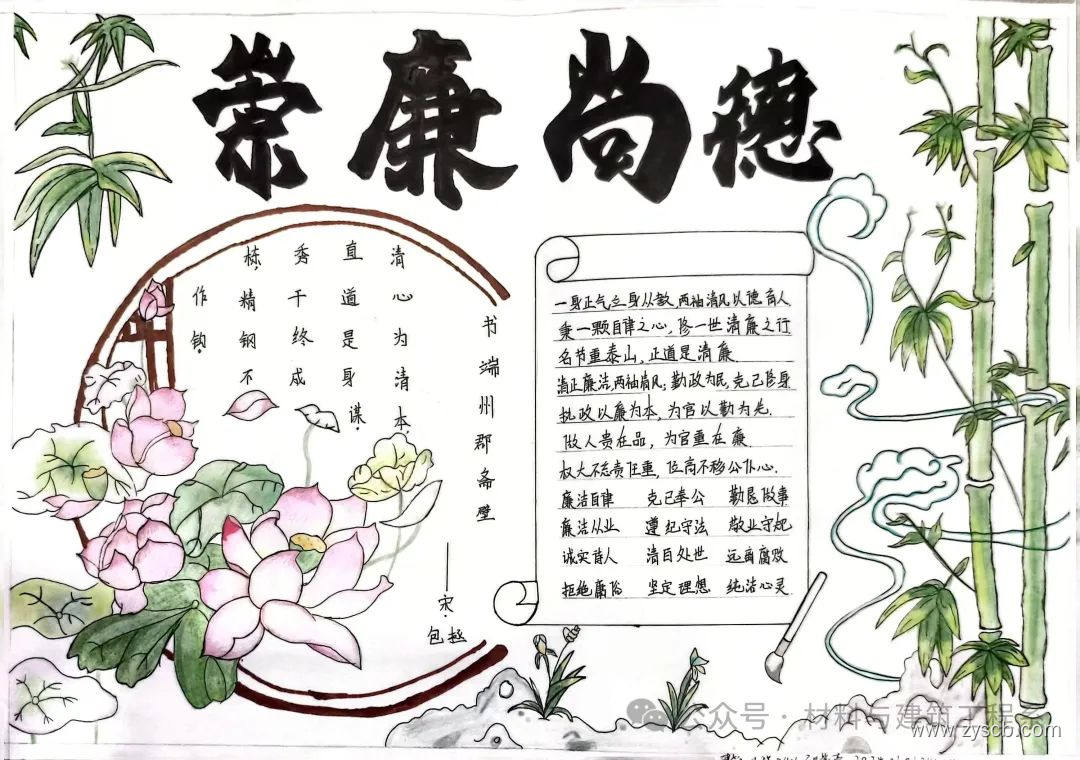 崇廉尚德
书端州郡斋壁
——宋·包拯
清心为清本,
直道是身谋.
秀干终成
栋.精钢不
作钩.
一身正气立身从教,两袖清风以德育人
秉一颗自律之心,修一世清廉之行
名节重泰山,正道是清廉
清正廉洁,两袖清风;勤政为民,克己修身
执政以廉为本,为官以勤为先.
做人贵在品,为官重在廉
权大不忘责任重,位高不移公仆心.
廉洁自律 克己奉公 勤恳做事
廉洁从业 遵纪守法 敬业守纪
诚实育人 清白处世 远离腐败
拒绝 坚定理想 纯洁心灵
公众号·材料与建筑工程系
www.zyscb.com